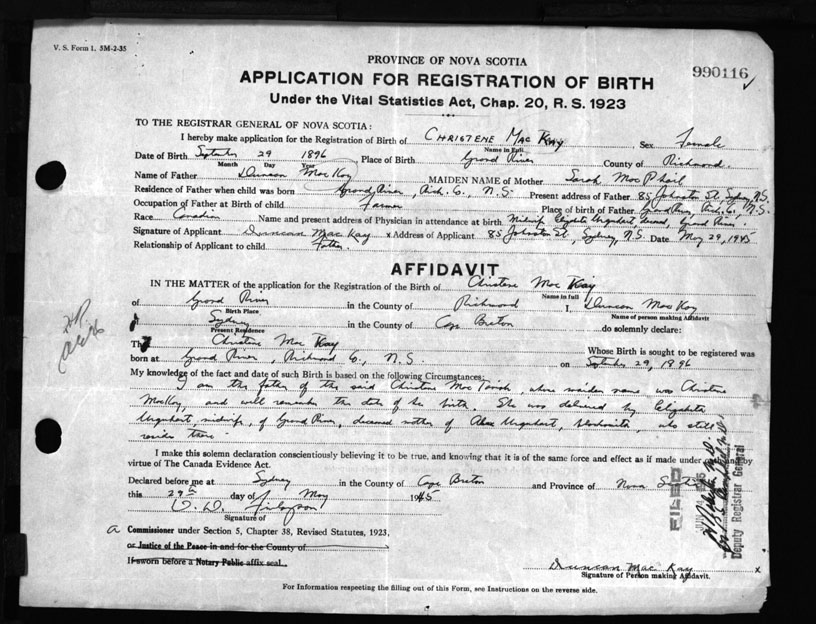 V. S. Form 1. 5M-2-35
990116
PROVINCE OF NOVA SCOTIA
APPLICATION FOR REGISTRATION OF BIRTH
Under the Vital Statistics Act, Chap. 20, R. S. 1923
TO THE REGISTRAR GENERAL OF NOVA SCOTIA:
I hereby make application for the Registration of Birth of CHRISTENE MAC KAY Sex Female
Name in Full
Date of Birth 29 1896, Place of Birth Grand River County of Richmond
Month Day Year
Name of Father Duncan MacKay MAIDEN NAME of Mother Sarah MacPhail
Residence of Father when child was born Grand River, Rich. Co., N.S. Present address of Father 85 Johnston St, Sydney, N.S.
Occupation of Father at Birth of child Farmer Place of birth of Father Grand River, Rich. Co., N.S.
Race Canadian Name and present address of Physician in attendance at birth Midwife Elizabeth Urquhart, Grand River
Signature of Applicant Duncan MacKay x Address of Applicant 85 Johnston St., Sydney, N.S. Date May 29, 1945
Relationship of Applicant to child Father
AFFIDAVIT
IN THE MATTER of the application for the Registration of the Birth of Christene Mac Kay
Name in full
of Grand River in the County of Richmond I, Duncan MacKay
Birth Place Name of person making Affidavit
Sydney in the County of Cape Breton do solemnly declare:
Present Residence
Christine Mac Kay Whose Birth is sought to be registered was
born at Grand River, Richmond Co., N.S. on 29, 1896
My knowledge of the fact and date of such Birth is based on the following Circumstances:
I am the father of the said Christine Mac, whose maiden name was Christine
MacKay, and well remember the date of her birth. She was delivered by Elizabeth
Urquhart, midwife, of Grand River, deceased mother of Alex Urquhart, who still
resides there
I make this solemn declaration conscientiously believing it to be true, and knowing that it is of the same force and effect as if made under oath and by
virtue of The Canada Evidence Act.
Declared before me at Sydney in the County of Cape Breton and Province of Nova Scotia
this 29th day of May 1945
Signature of
a Commissioner under Section 5, Chapter 38, Revised Statutes, 1923,
or Justice of the Peace in and for the County of
If sworn before a Notary Public affix seal.
FILED
Deputy Registrar General
Duncan Mac Kay x
Signature of Person making Affidavit.
For Information respecting the filling out of this Form, see Instructions on the reverse side.